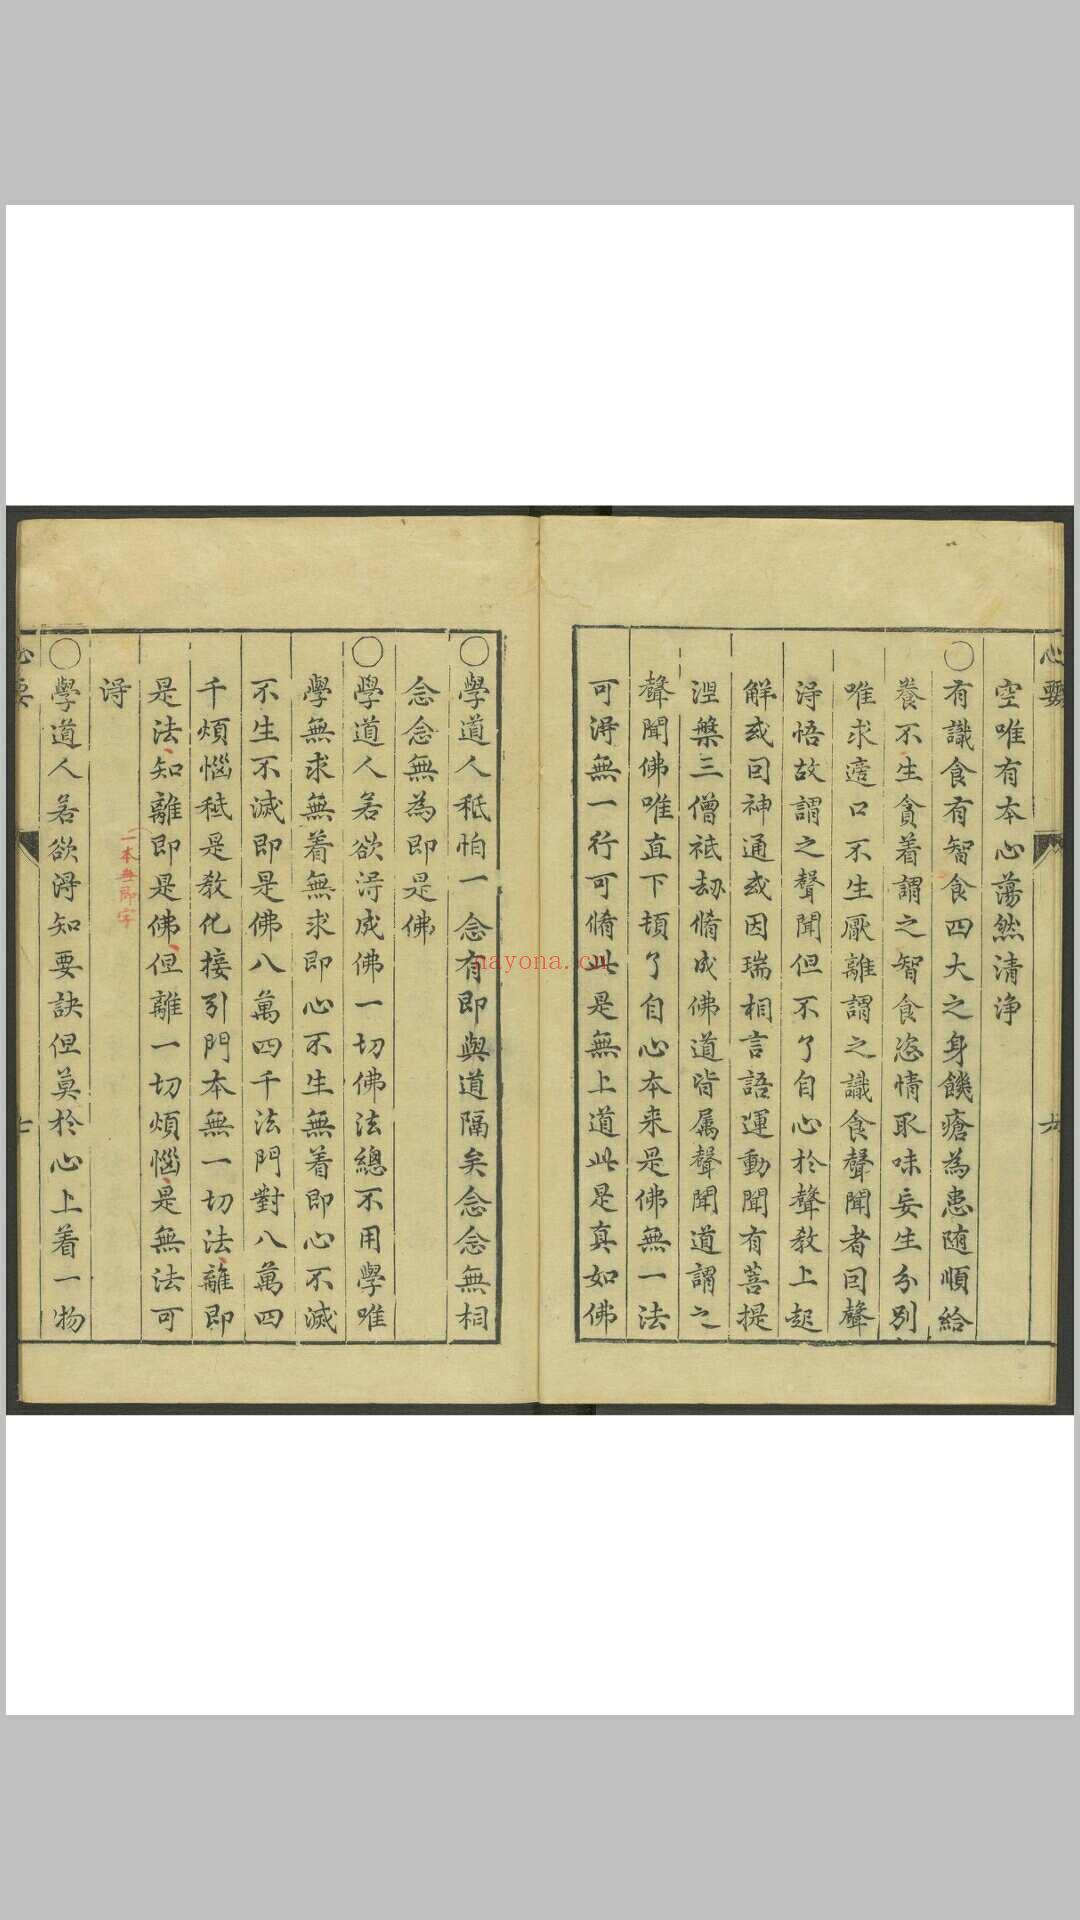 心要
空唯有本心蕩然清浄
○有識食有智食四大之身饑瘡為患隨順給
養不生貪着謂之智食恣情取味妄生分别
唯求適口不生厭離謂之識食聲聞者因聲
淂悟故謂之聲聞但不了自心於聲教上起
解或因神通或因瑞相言語運動聞有菩提
涅槃三僧祇劫脩成佛道皆属聲聞道謂之
聲聞佛唯直下頓了自心本来是佛無一法
可淂無一行可脩此是無上道此是真如佛
○學道人秪怕一念有即與道隔矣念念無相
念念無為即是佛
○學道人若欲淂成佛一切佛法總不用學唯
學無求無着無求即心不生無着即心不滅
不生不滅即是佛八萬四千法門對八萬四
千煩惱秪是教化接引門本無一切法離即
是法知離即是佛但離一切煩惱是無法可
一本無即字
淂
○學道人若欲淂知要訣但莫於心上着一物
七
nayona.cn